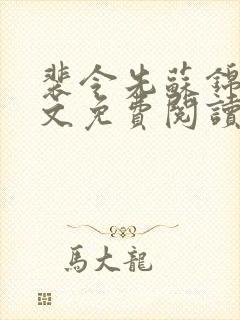 裴令先蘇錦
文免費閱讀
馬大龍